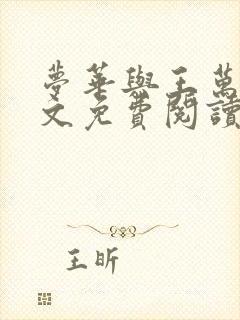 夢華與王萬
文免費閱讀
王昕